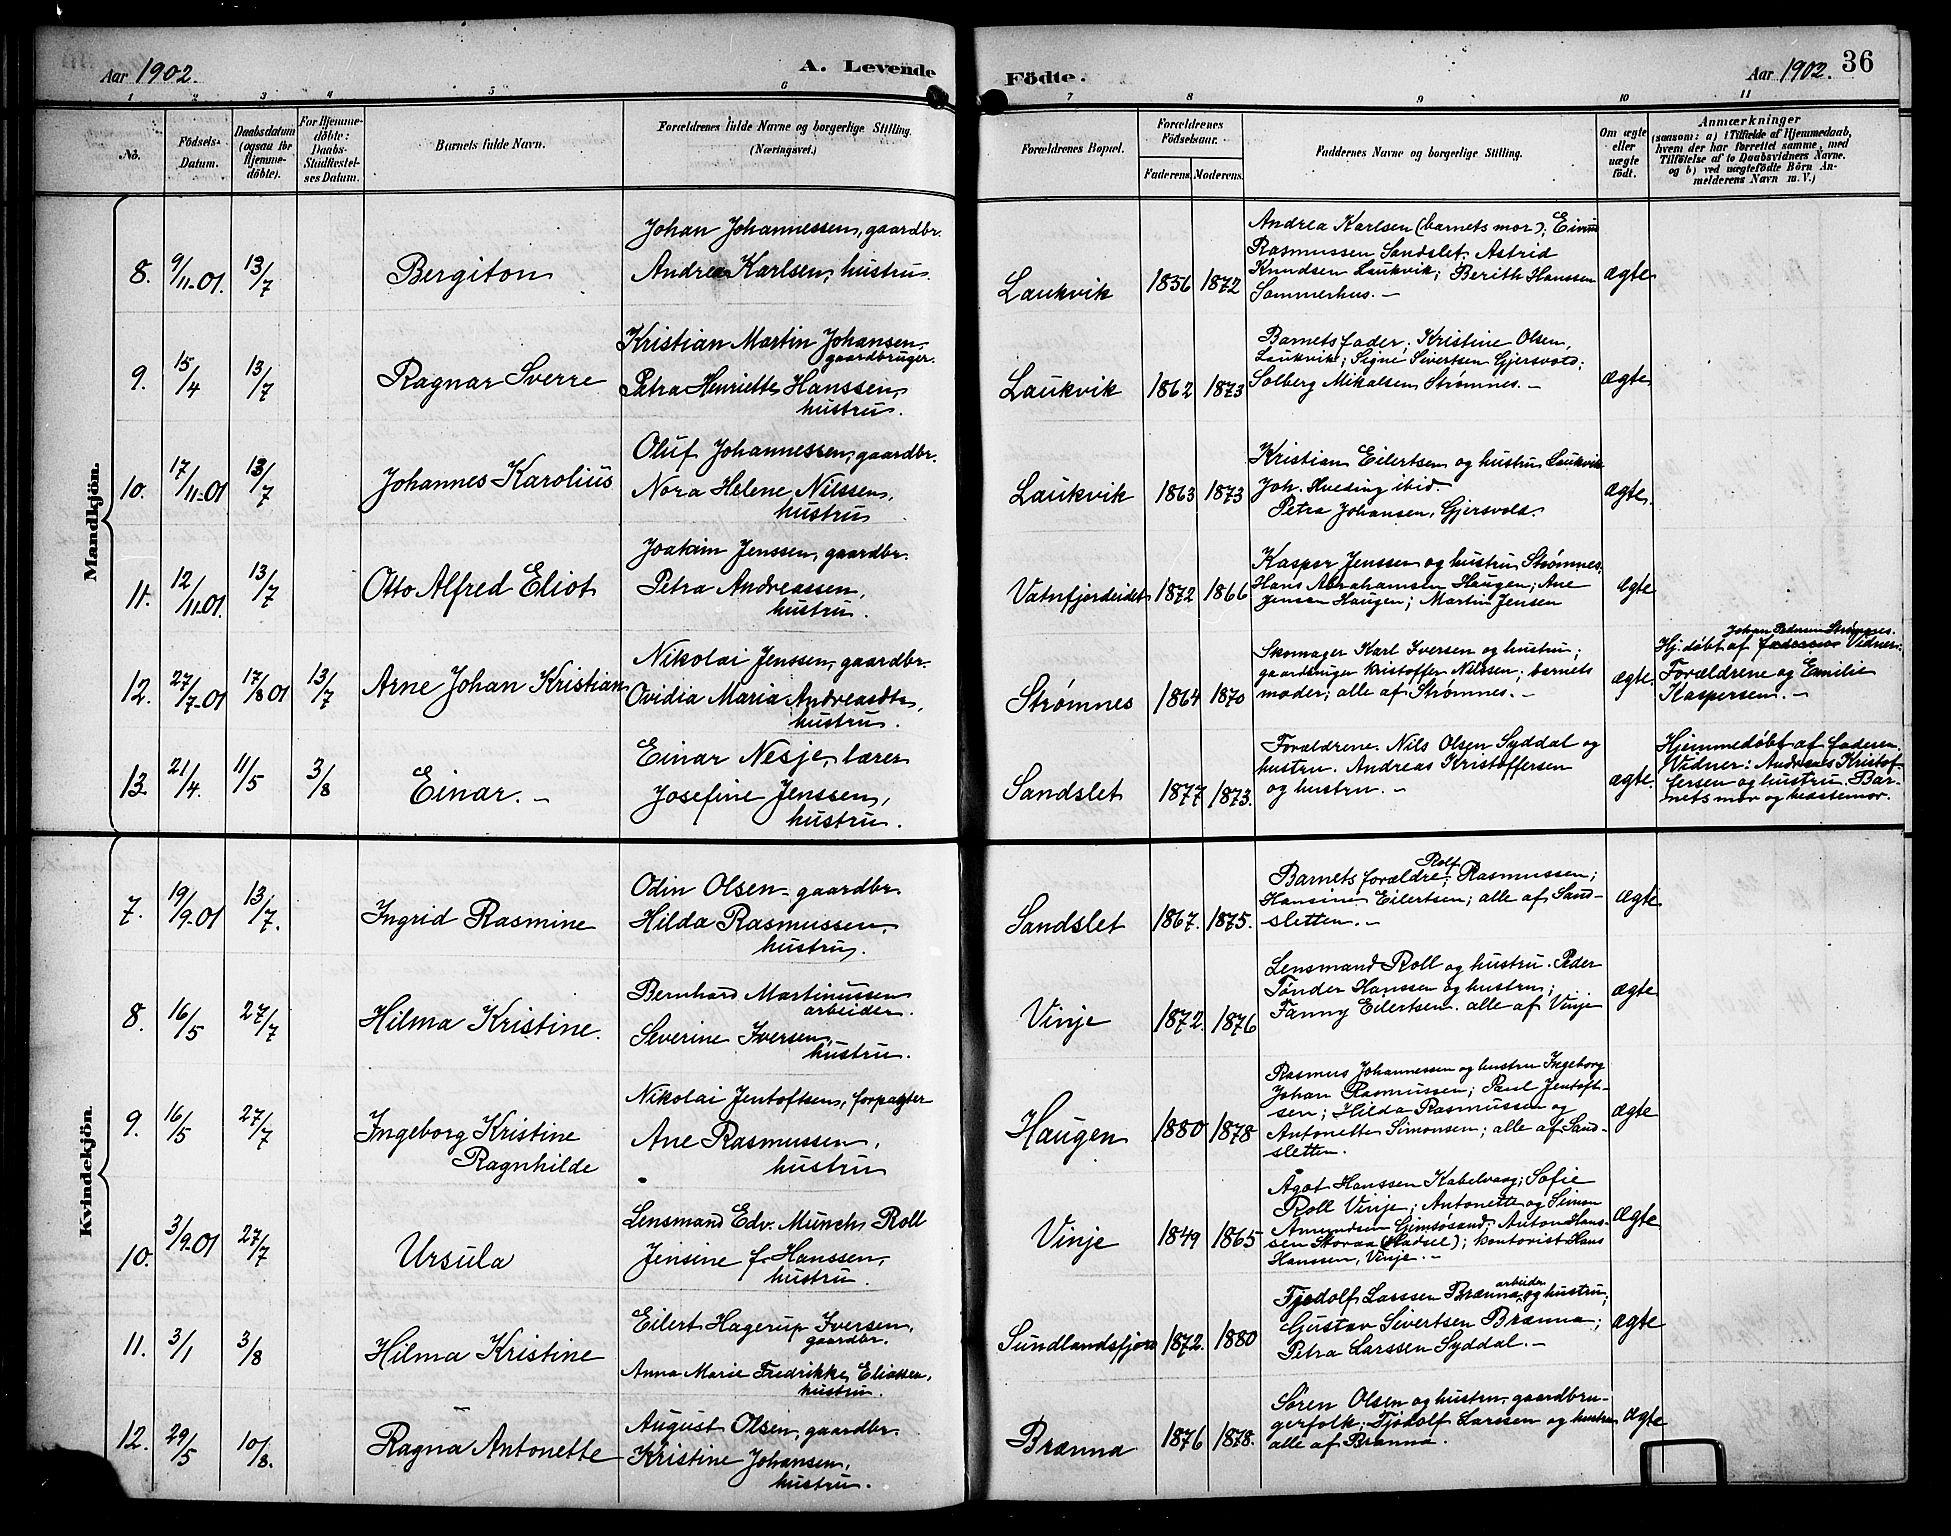 Aar 1902.
A. Levende
Födte.
Aar 1902. 36
1 2 3 4 5 6 7 8 9 10 11
No.
Födsels-
Datum.
Daabsdatum
(ogsaa for
Hjemme-
döbte).
For Hjemme-
döbte:
Daabs-
Stadfæstel-
ses Datum.
Barnets fulde Navn.
Forældrenes fulde Navne og borgerlige Stilling.
(Næringsvei.)
Forældrenes Bopæl.
Forældrenes
Födselsaar.
Faderens. Moderens.
Faddernes Navne og borgerlige Stilling.
Om ægte
eller
uægte
födt.
Anmærkninger
(saasom: a) i Tilfælde af Hjemmedaab,
hvem der har forrettet samme, med
Tilföielse af to Daabsvidners Navne.
og b) ved uægtefödte Börn An-
melderens Navn m. V.)
Mandkjön.
8. 9/11-01. 13/7 Bergiton
Johan Johannessen, gaardbr.
Andrea Karlsen, hustru.
Laukvik 1856 1872
Andrea Karlsen (barnets mor); Einar
Rasmussen Sandslet; Astrid
Knudsen Laukvik; Berith Hanssen
Sommerhus. —
ægte
9. 15/4 13/7 Ragnar Sverre
Kristian Martin Johansen,
gaardbruger.
Petra Henriette Hanssen,
hustru.
Laukvik 1862 1873
Barnets fader; Kristine Olsen,
Laukvik; Signe Sivertsen Gjersvold;
Solberg Mikalsen Strømnes. —
ægte
10. 17/11-01 13/7 Johannes Karolius
Oluf Johannessen, gaardbr.
Nora Helene Nilssen,
hustru
Laukvik 1863 1873
Kristian Eilertsen og hustru Laukvik
Joh. Hveding ibid.
Petra Johansen, Gjersvold.
ægte.
11. 12/11-01. 13/7 Otto Alfred Eliot
Joakim Jenssen, gaardbr.
Petra Andreassen,
hustru.
Vatnfjordeidet 1872 1866
Kasper Jenssen og hustru Strømnes;
Hans Abrahamsen Haugen; Ane
Jensen Haugen; Martin Jensen
ægte
12. 27/7-01 17/8 01 13/7 Arne Johan Kristian
Nikolai Jenssen, gaardbr.
Ovidia Maria Andreasdtr,
hustru.
Strømnes 1864 1870
Skomager Karl Iversen og hustru;
gaardbruger Kristoffer Nilssen; barnets
moder; alle af Strømnes. —
ægte.
Johan Pedersen Strømnes.
Hj. døbt af faderen Vidner:
Forældrene og Emilie
Kaspersen. —
13. 21/4. 11/5 3/8 Einar. —
Einar Nesje, lærer
Josefine Jenssen,
hustru.
Sandslet 1877 1873.
Forældrene. Nils Olsen Syddal og
hustru. Andreas Kristoffersen
og hustru. —
ægte.
Hjemmedøbt af faderen.
Vidner: Andreas Kristof-
fersen og hustru. Bar-
nets mor og bestemor.
Kvindekjön.
7. 19/9-01 13/7. Ingrid Rasmine
Odin Olsen - gaardbr
Hilda Rasmussen,
hustru.
Sandslet 1867. 1875.
Rolf
Barnets forældre; Rasmussen;
Hansine Eilertsen; alle af Sand-
sletten. —
ægte
8. 16/5 27/7 Hilma Kristine.
Bernhard Martinussen
arbeider.
Severine Iversen,
hustru.
Vinje 1872. 1876
Lensmand Roll og hustru. Peder
Tønder Hanssen og hustru;
Fanny Eilertsen. alle af Vinje
ægte
9. 16/5 27/7 Ingeborg Kristine
Ragnhilde
Nikolai Jentoftsen, forpagter
Ane Rasmussen,
hustru
Haugen 1880 1878
Rasmus Johannessen og hustru Ingeborg
Johan Rasmussen; Paul Jentoft-
sen; Hilda Rasmussen og
Antonette Simonsen; alle af Sand-
sletten.
ægte
10. 3/9-01 27/7 Ursula
Lensmand Edv. Munch Roll
Jensine f. Hanssen,
hustru.
Vinje 1849 1865
Ågot Hanssen Kabelvaag; Sofie
Roll Vinje; Antonette og Simon
Amundsen Gimsøsand; Anton Hans-
sen Storaa (Hadsel); kontorist Hans
Hanssen, Vinje. —
ægte
11. 3/1 3/8 Hilma Kristine
Eilert Hagerup Iversen,
gaardbr.
Anna Marie Fredrikke Eliassen,
hustru.
Sundlandsfjord 1872. 1880
arbeider
Fjodolf Larssen Brænna, og hustru;
Gustav Sivertsen Brænna;
Petra Larssen Syddal. —
ægte
12. 29/5 10/8. Ragna Antonette
August Olsen, gaardbr.
Kristine Johansen,
hustru.
Brænna 1876 1878.
Søren Olsen og hustru, gaardbru-
gerfolk; Fjodolf Larssen og hustru
alle af Brænna.
ægte